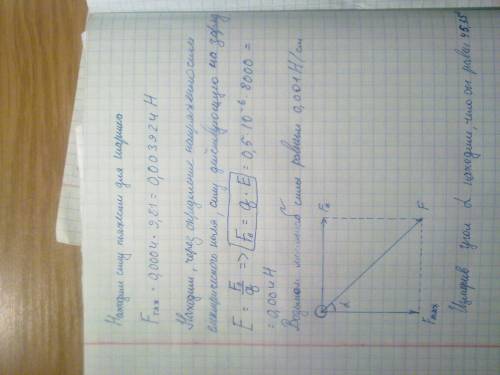 Находим силу тяжести для шарика
Fтяж = 0,0004 · 9,81 = 0,003924 Н
Находим, через определение напряженности
электрического поля, силу действующую на заряд
E = Fэ/q => Fэ = q · E = 0,5 · 10⁻⁶ · 8000 =
= 0,004 Н
Возьмем силы равным 0,001 Н/см
Fэ
α
F
Fтяж
Измерив угол α находим, что он равен 45,5°